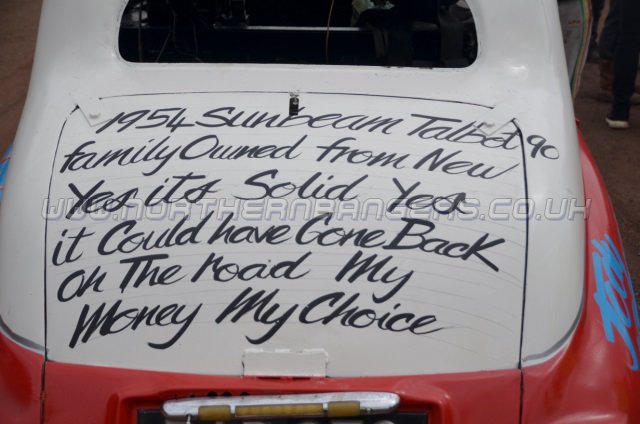 1954 Sunbeam Talbot 90
family Owned from New
Yes its Solid Yes
www.northernbangers.co.uk
it Could have Gone Back
on The road My
Money My Choice